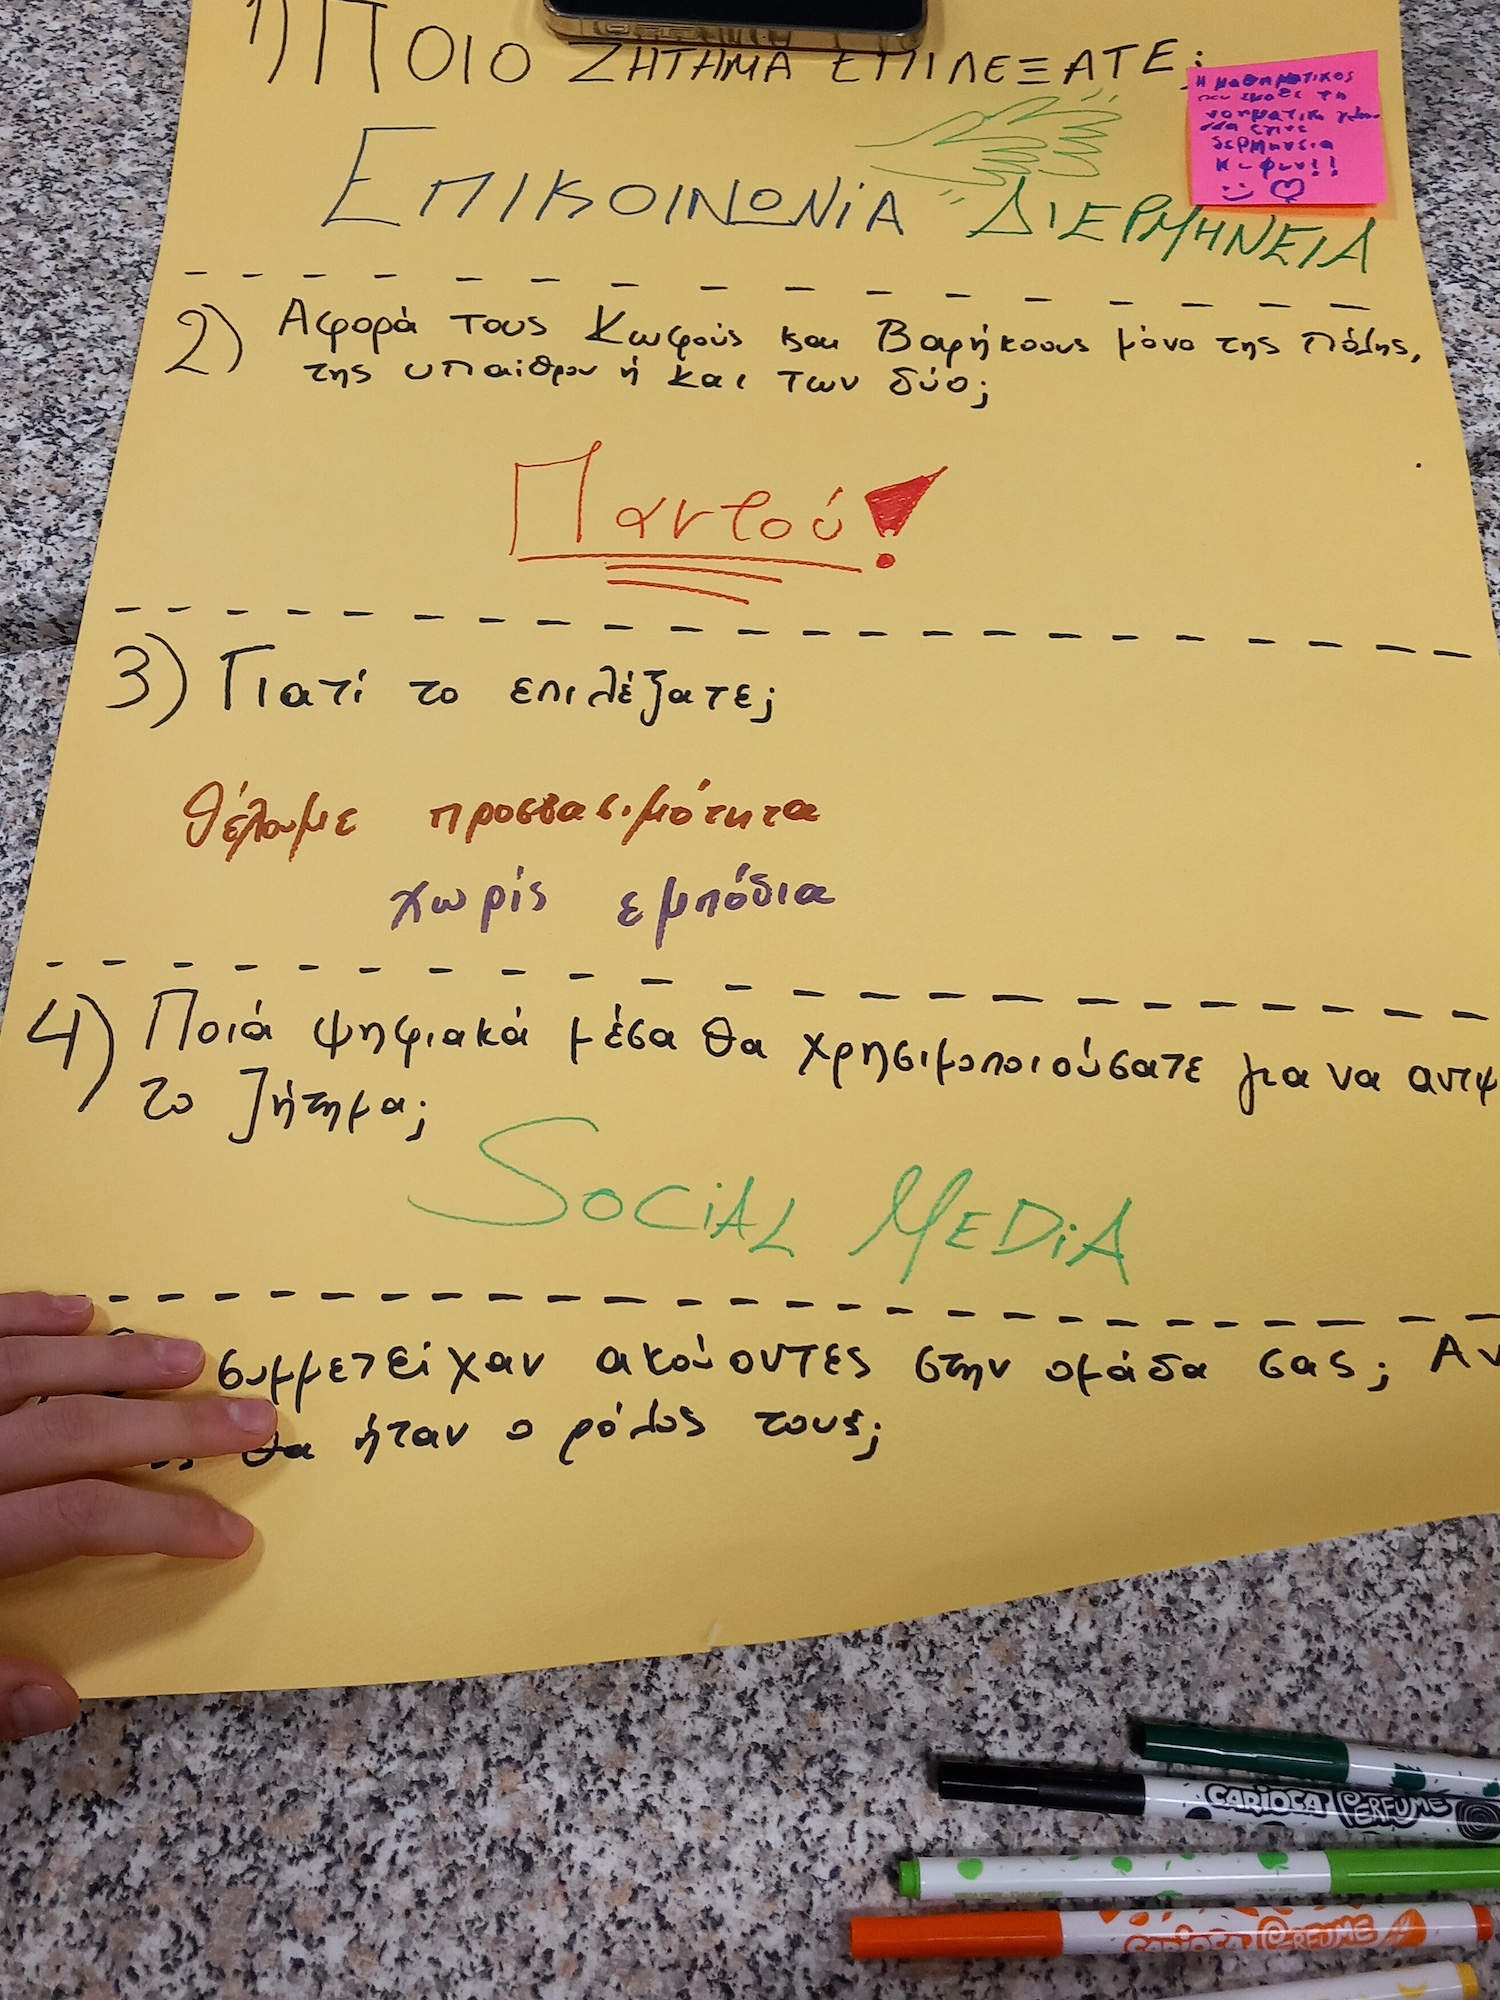 1) ΠΟΙΟ ΖΗΤΗΜΑ ΕΠΙΛΕΞΑΤΕ;
Η μαθηματικος
που εμαθε τη
νοηματικη γλω-
σσα εγινε
διερμηνεια
Κωφων!!
ΕΠΙΚΟΙΝΩΝΙΑ
ΔΙΕΡΜΗΝΕΙΑ
2) Αφορά τους Κωφούς και Βαρήκοους μόνο της πόλης,
της υπαίθρου ή και των δύο;
Παντού!
3) Γιατί το επιλέξατε;
Θέλουμε προσβασιμότητα
χωρίς εμπόδια
4) Ποιά ψηφιακά μέσα θα χρησιμοποιούσατε για να αντιμ
το ζήτημα;
SOCIAL MEDIA
συμμετείχαν ακούοντες στην ομάδα σας; Αν
θα ήταν ο ρόλος τους;
CARIOCA PERFUME
CARIOCA PERFUME